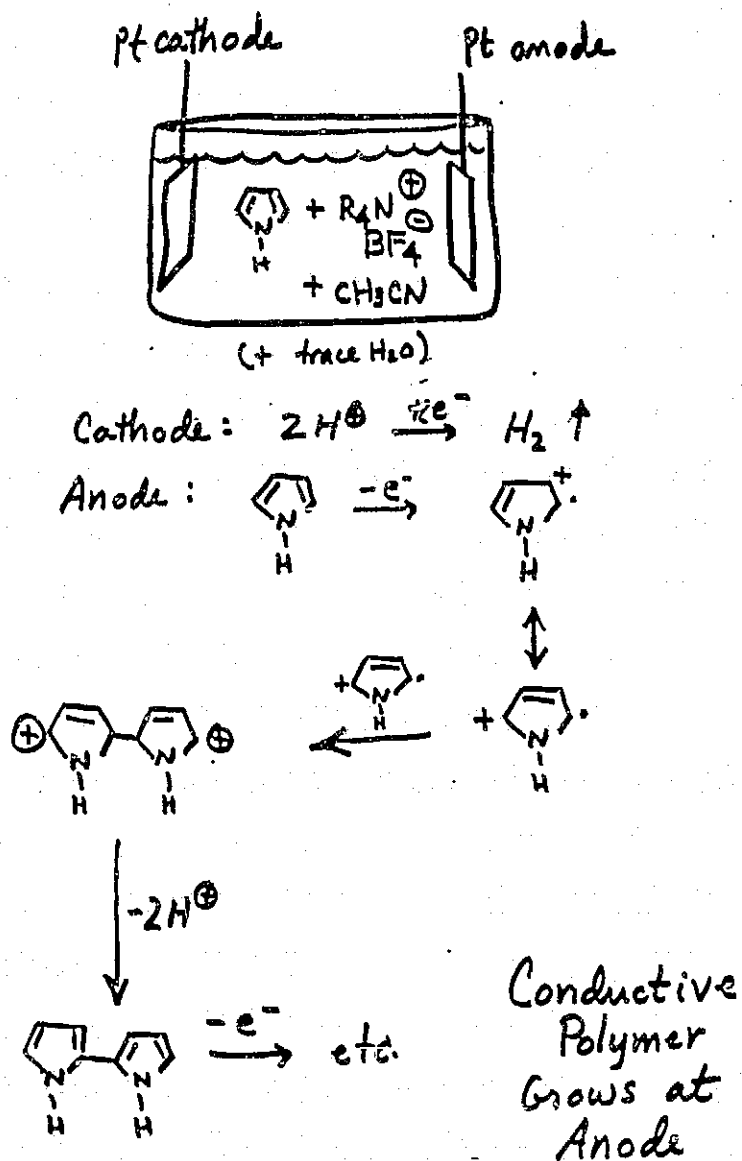 Pt cathode Pt anode
N + R₄N⊕
H BF₄⊖
+ CH₃CN
(+ trace H₂O)
Cathode: 2H⊕ e⁻ → H₂ ↑
Anode: N H -e⁻ → + · N H
↕
+ · N H
+ N H · 
⊕ N H N H ⊕
-2H⊕
N H N H -e⁻ → etc.
Conductive
Polymer
Grows at
Anode